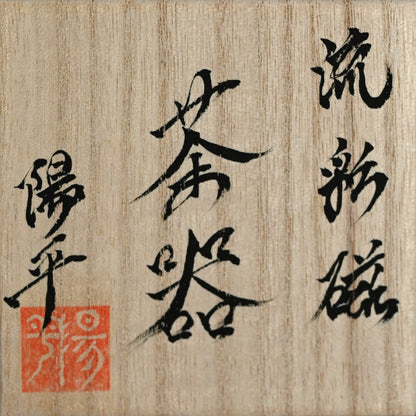 流彩磁
茶器
陽平